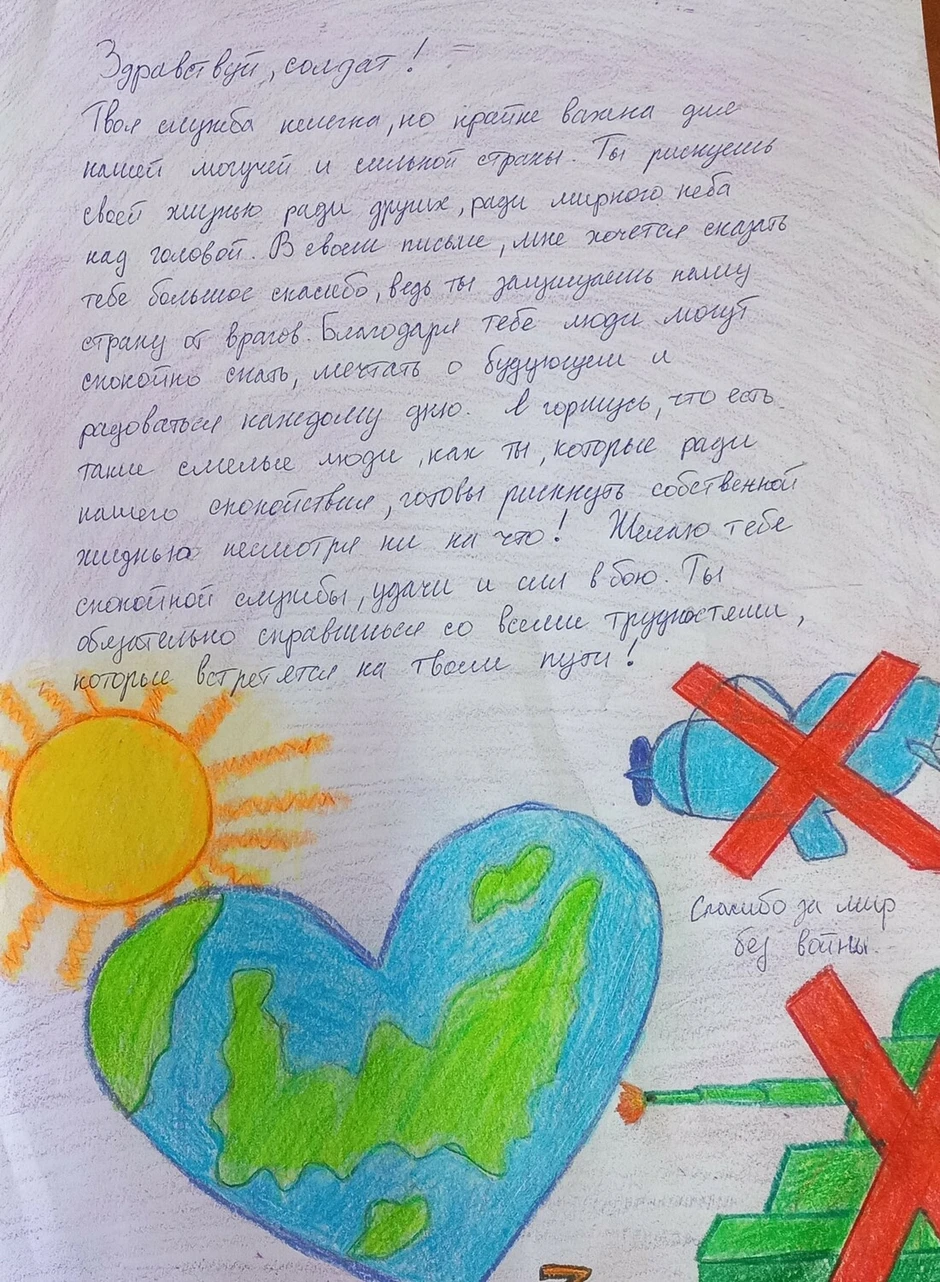 Здравствуй, солдат!
Твоя служба нелегка, но крайне важна для
нашей могучей и сильной страны. Ты рискуешь
своей жизнью ради других, ради мирного неба
над головой. В своем письме, мне хочется сказать
тебе большое спасибо, ведь ты защищаешь нашу
страну от врагов. Благодаря тебе люди могут
спокойно спать, мечтать о будующем и
радоваться каждому дню. Я горжусь, что есть
такие смелые люди, как ты, которые ради
нашего спокойствия, готовы рискнуть собственной
жизнью несмотря ни на что! Желаю тебе
спокойной службы, удачи и сил в бою. Ты
обязательно справишься со всеми трудностями,
которые встретятся на твоем пути!
Спасибо за мир
без войны.